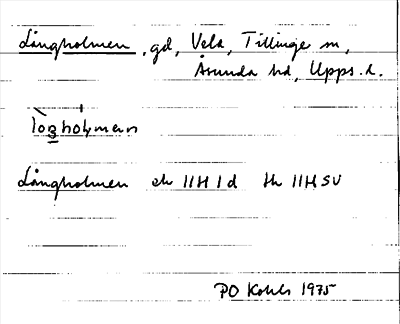 Långholmen, gd, Vela, Tillinge sn,
Åsunda hd, Upps. l.
lòŋhólmən
Långholmen ek 11H 1 d th 11H SV
PO Kohls 1975